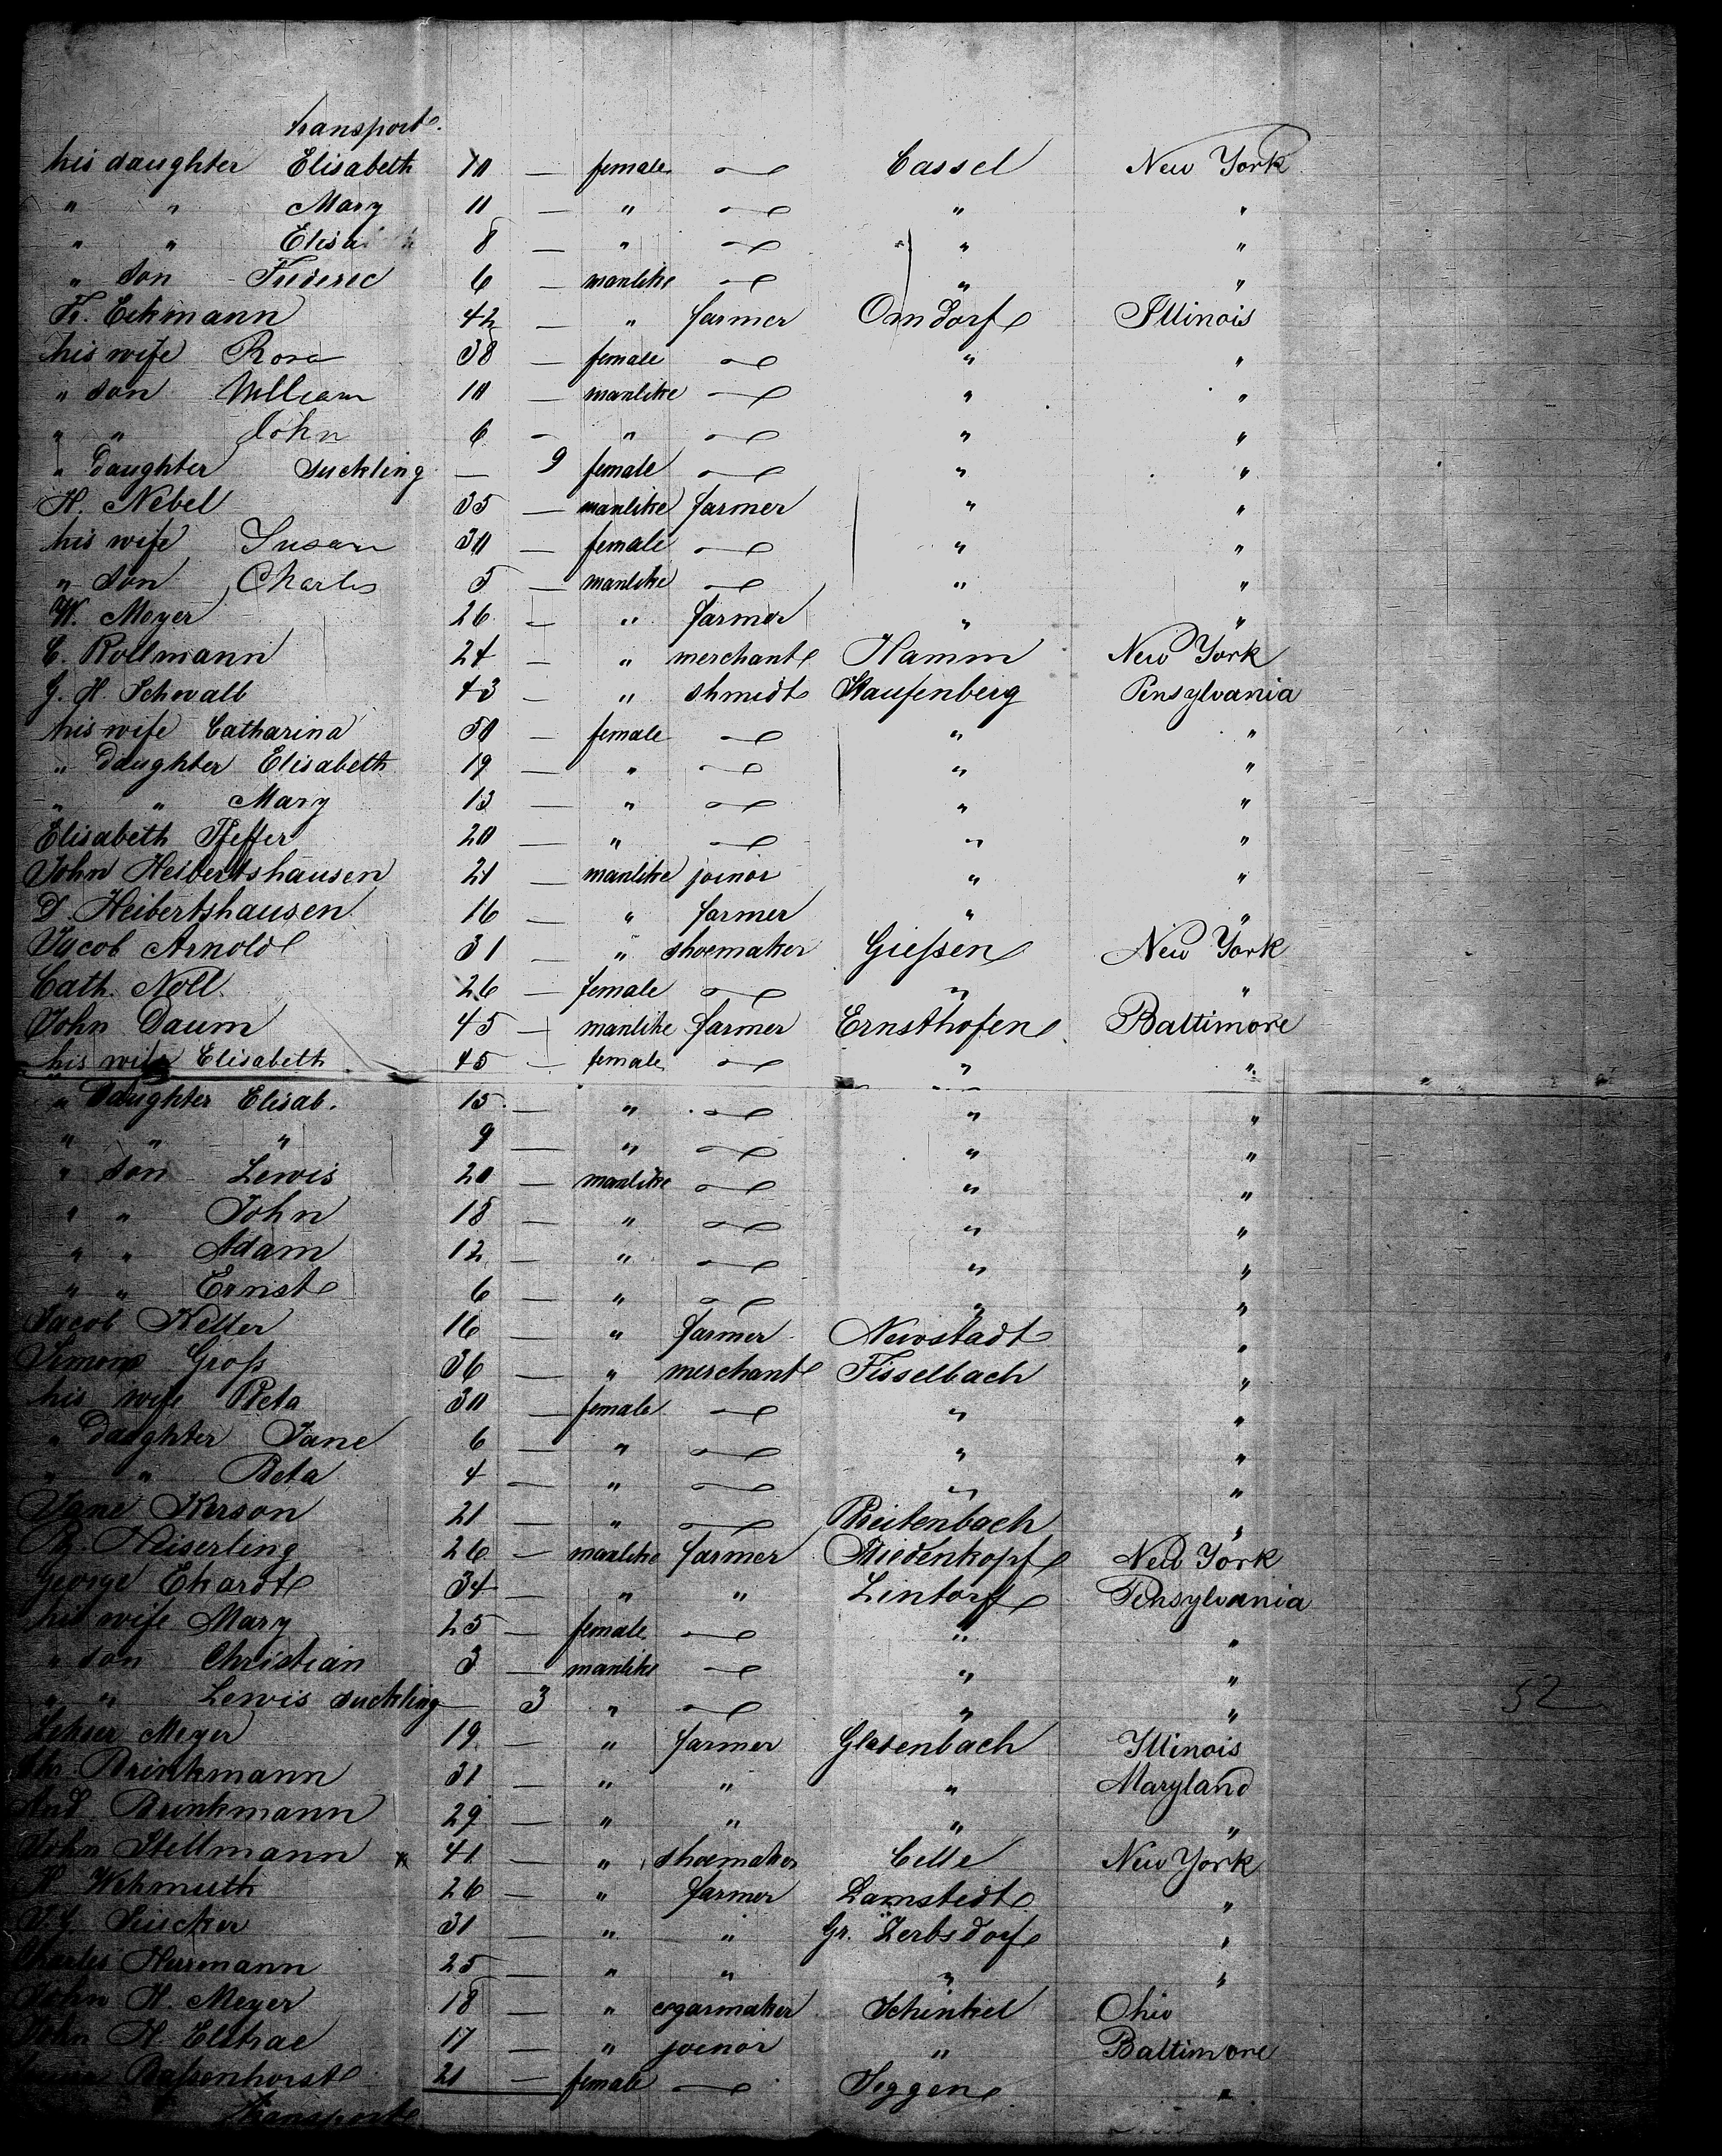 transport.
his daughter Elisabeth 10 — female — Cassel New York
" " Mary 11 — " — " "
" " Elisa 8 — " — " "
" son Frederec 6 — manlike — " "
Fr. Eckmann 42 — " farmer Omdorf Illinois
his wife Rosa 38 — female — " "
" son William 10 — manlike — " "
" " John 6 — " — " "
" Daughter suckling — 9 female — " "
H. Nebel 35 — manlike farmer " "
his wife Susan 30 — female — " "
" son Charles 5 — manlike — " "
W. Meyer 26 — " farmer " "
C. Rollmann 24 — " merchant Hamm New York
J. H. Schwalb 43 — " shmidt Staufenberg Pensylvania
his wife Catharina 50 — female — " "
" Daughter Elisabeth 19 — " — " "
" " Mary 13 — " — " "
Elisabeth Pfeffer 20 — " — " "
John Heibertshausen 21 — manlike joinor " "
D. Heibertshausen 16 — " farmer " "
Jacob Arnold 31 " shoemaker Gießen New York
Cath. Noll 26 — female — " "
John Daum 45 — manlike farmer Ernsthofen Baltimore
his wife Elisabeth 45 — female — " "
" Daughter Elisab. 15 — " — " "
" " " 9 — " — " "
" son Lewis 20 — manlike — " "
" " John 18 — " — " "
" " Adam 12 — " — " "
" " Ernst 6 — " — " "
Jacob Keller 16 — " farmer Neustadt "
Simon Groß 36 — " merchant Fisselbach "
his wife Beta 30 — female — " "
" Daughter Jane 6 — " — " "
" " Beta 4 — " — " "
Jane Kerson 21 — " — Breitenbach "
Heiserling 26 — manlike farmer Biedenkopf New York
George Ekardt 34 — " " Lintorf Pensylvania
his wife Mary 25 — female — " "
" son Christian 3 — manlike — " "
" " Lewis suckling — 3 " — " "
52
Meyer 19 — " farmer Gladenbach Illinois
Chr. Brinkmann 31 — " " " Maryland
And. Brinkmann 29 — " " " "
John Stellmann x 41 — " shoemaker Celle New York
H. Wehmuth 26 — " farmer Lamstedt "
31 — " " Gr. Zerbsdorf "
Charles Herrmann 25 — " " " "
John H. Meyer 18 — " cygarmaker Schinkel Ohio
John H. Elstrae 17 — " joinor " Baltimore
Baßenhorst 21 — female — Seggen "
Transport